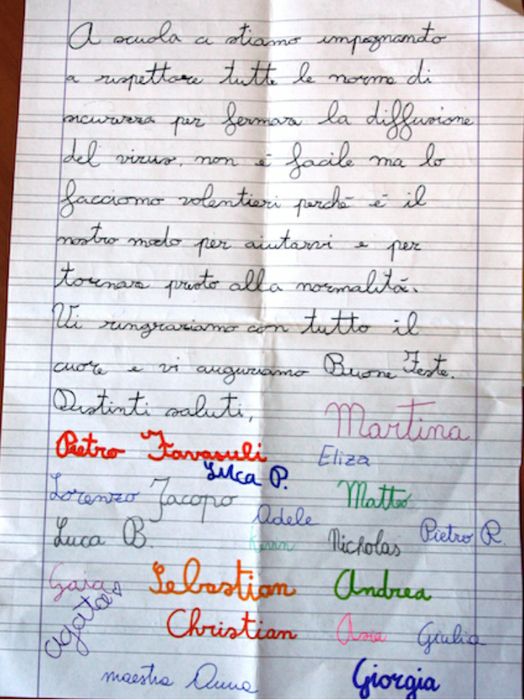 A scuola ci stiamo impegnando
a rispettare tutte le norme di
sicurezza per fermare la diffusione
del virus, non é facile ma lo
facciamo volentieri perché é il
nostro modo per aiutarvi e per
tornare presto alla normalitá.
Vi ringraziamo con tutto il
cuore e vi auguriamo Buone Feste.
Distinti saluti,
Martina
Pietro Favasuli
Eliza
Luca P.
Lorenzo Jacopo
Matteo
Adele
Luca B.
Kevin
Nicholas
Pietro R.
Gaia
Sebastian
Andrea
Agata
Christian
Giulia
maestra Anna
Giorgia